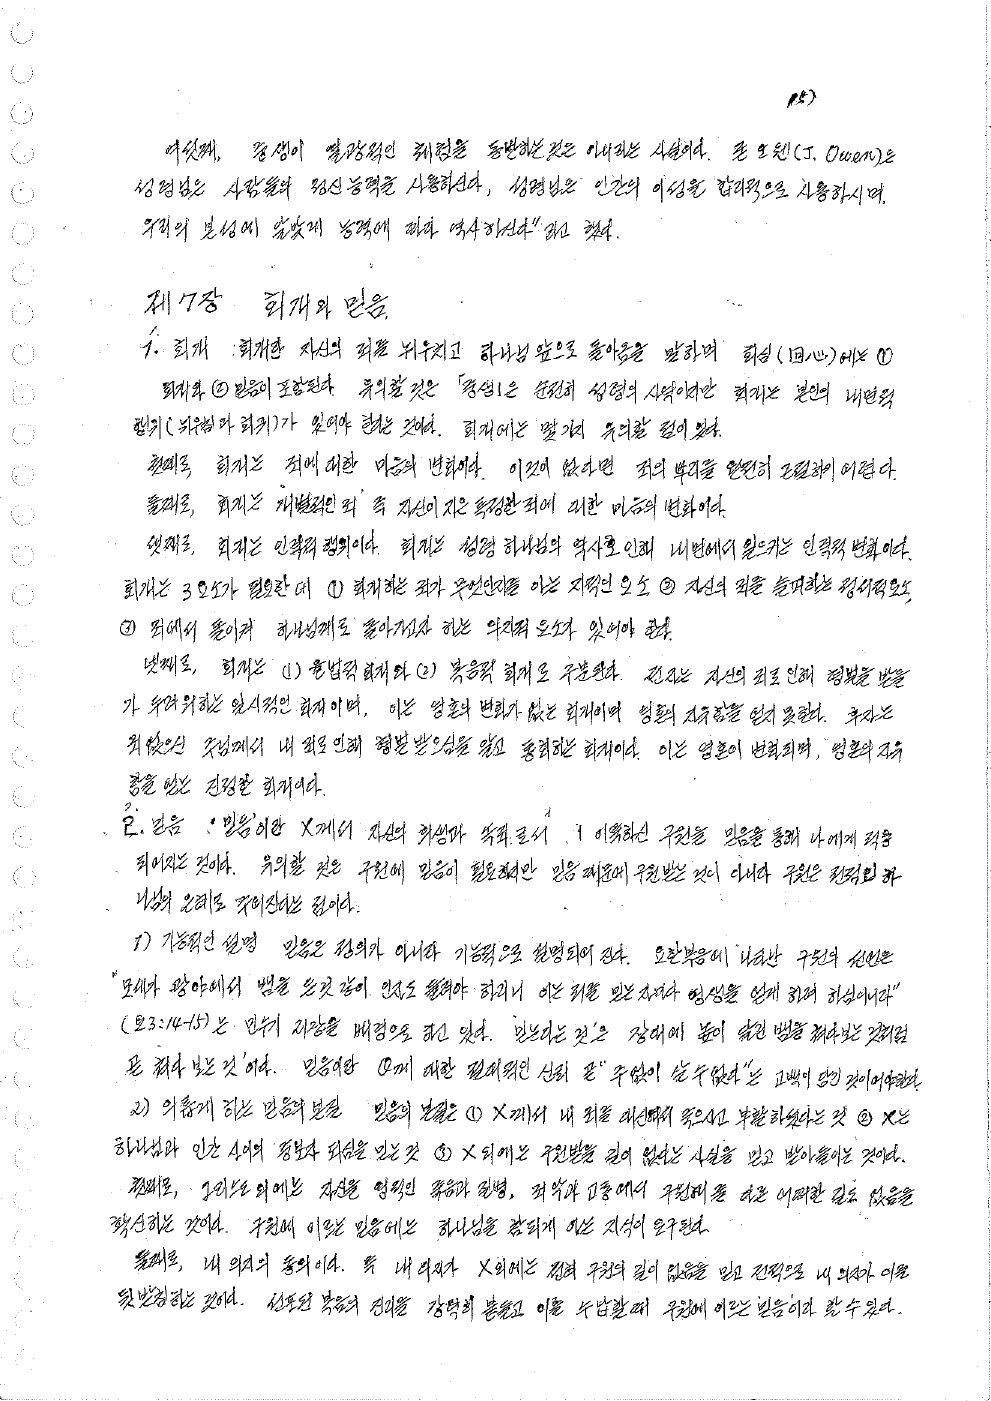 15)
여섯째, 중생이 열광적인 체험을 동반하는 것은 아니라는 사실이다. 존 오웬(J. Owen)은
성령님은 사람들의 정신능력을 사용하신다, 성령님은 인간의 이성을 합리적으로 사용하시며,
우리의 본성에 알맞게 능력에 따라 역사하신다" 라고 했다.
제7장 회개와 믿음.
1. 회개 : 회개란 자신의 죄를 뉘우치고 하나님 앞으로 돌아옴을 말하며 회심(回心)에는 ①
회개와 ② 믿음이 포함된다. 유의할 것은 「중생」은 순전히 성령의 사역이지만 회개는 본인의 내면적
행위(뉘우침과 회귀)가 있어야 한다는 것이다. 회개에는 몇가지 유의할 점이 있다.
첫째로, 회개는 죄에 대한 마음의 변화이다. 이것이 없다면 죄의 뿌리를 완전히 근절하기 어렵다.
둘째로, 회개는 '개별적인 죄' 즉 자신이 지은 특정한 죄에 대한 마음의 변화이다.
셋째로, 회개는 인격적 행위이다. 회개는 성령 하나님의 역사로 인해 내면에서 일으키는 인격적 변화이다.
회개는 3요소가 필요한데 ① 회개하는 죄가 무엇인지를 아는 지적인 요소 ② 자신의 죄를 슬퍼하는 정서적요소,
③ 죄에서 돌이켜 하나님께로 돌아가고자 하는 의지적 요소가 있어야 한다.
넷째로, 회개는 (1) 율법적 회개와 (2) 복음적 회개로 구분된다. 전자는 자신의 죄로 인해 형벌을 받을
가 두려워하는 일시적인 회개이며, 이는 영혼의 변화가 없는 회개이며 영혼의 자유함을 얻지 못한다. 후자는
죄없으신 주님께서 내 죄로 인해 형벌 받으심을 알고 통회하는 회개이다. 이는 영혼이 변화되며, 영혼의 자유
함을 얻는 진정한 회개이다.
2. 믿음 : '믿음'이란 X께서 자신의 희생과 속죄로서 이룩하신 구원을 믿음을 통해 나에게 적용
되어지는 것이다. 유의할 것은 구원에 믿음이 필요하지만 믿음 때문에 구원받는 것이 아니라 구원은 전적인 하
나님의 은혜로 주어진다는 점이다.
1) 기능적인 설명 믿음은 정의가 아니라 기능적으로 설명되어 진다. 요한복음에 나타난 구원의 선언은
"모세가 광야에서 뱀을 든것 같이 인자도 들려야 하리니 이는 저를 믿는 자마다 영생을 얻게 하려 하심이니라"
(요3:14-15)는 민수기 사망을 배경으로 하고 있다. '믿는다는 것'은 장대에 높이 달린 뱀을 쳐다보는 것처럼
쳐다 보는 것'이다. 믿음이란 대한 절대적인 신뢰 곧 "주없이 살 수 없다"는 고백이 담긴 것이어야한다.
2) 의롭게 하는 믿음의 본질 믿음의 본질은 ① X께서 내 죄를 대신해서 죽으시고 부활하셨다는 것 ② X는
하나님과 인간 사이의 중보자 되심을 믿는 것 ③ X외에는 구원받을 길이 없다는 사실을 믿고 받아들이는 것이다.
첫째로, 그리스도 외에는 자신을 영적인 죽음과 질병, 죄악과 고통에서 구원해 줄 다른 어떠한 길도 없음을
확신하는 것이다. 구원에 이르는 믿음에는 하나님을 참되게 아는 지식이 요구된다.
둘째로, 내 의지의 동의이다. 즉 내 의지가 X외에는 전혀 구원의 길이 없음을 믿고 전적으로 내 의지가 이를
뒷받침하는 것이다. 선포된 복음의 진리를 강력히 붙들고 이를 수납할 때 구원에 이르는 '믿음'이라 할 수 있다.